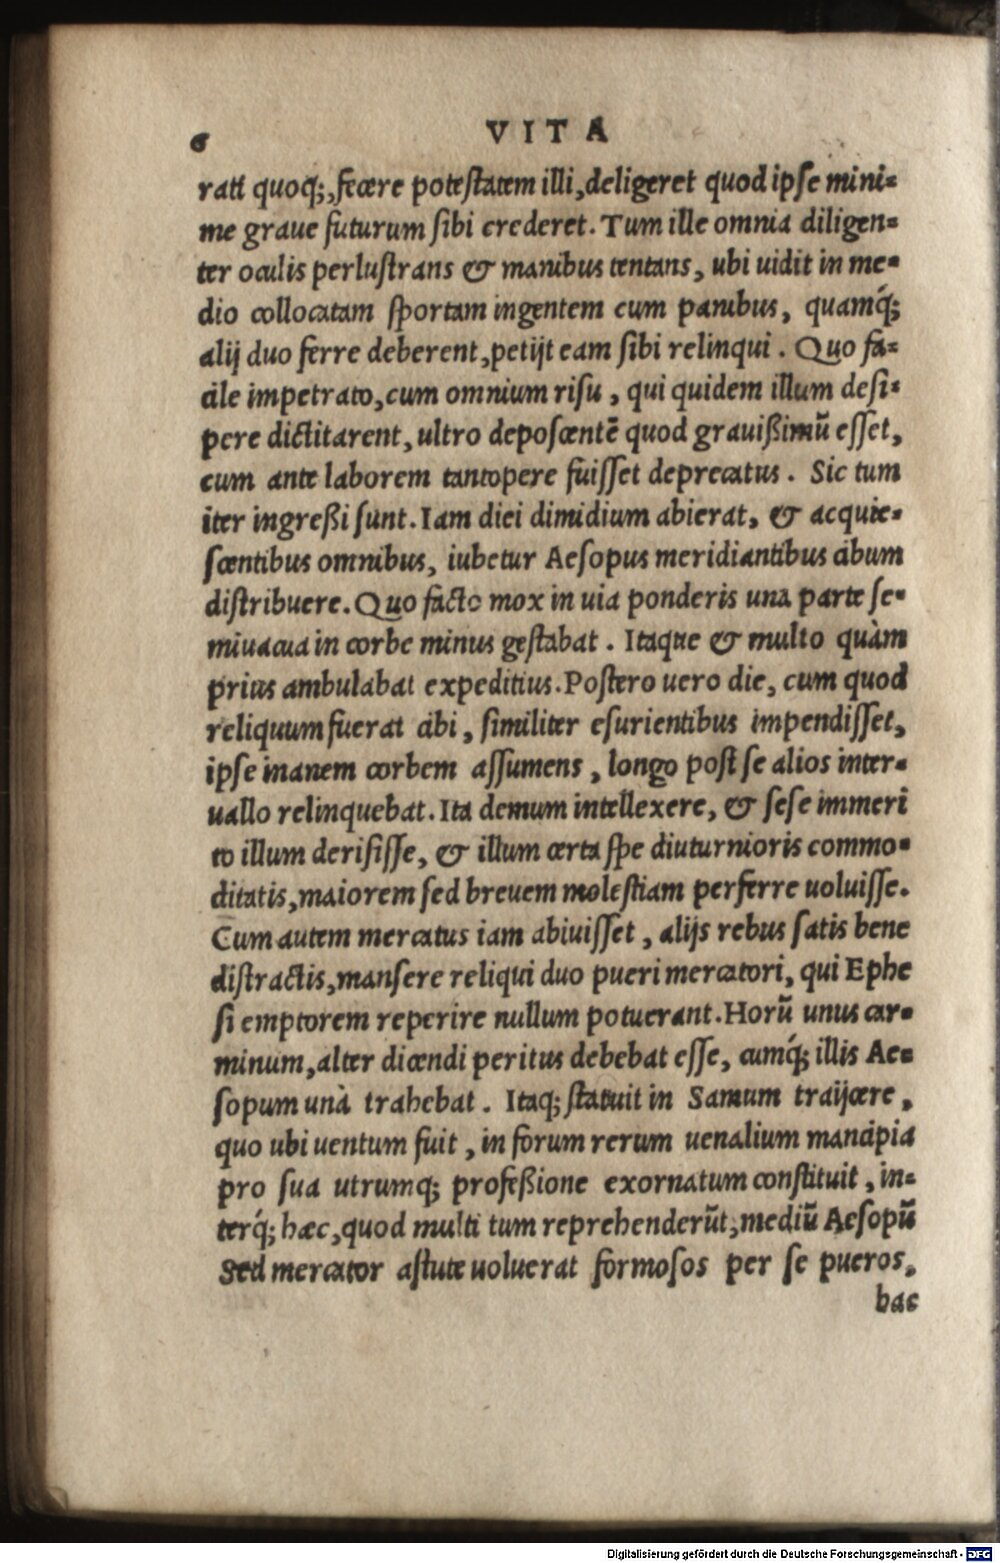 6 VITA
rati quoq;, fecere potestatem illi, deligeret quod ipse mini-
me graue futurum sibi crederet. Tum ille omnia diligen-
ter oculis perlustrans & manibus tentans, ubi uidit in me-
dio collocatam sportam ingentem cum panibus, quamq́;
alij duo ferre deberent, petijt eam sibi relinqui. Quo fa-
cile impetrato, cum omnium risu, qui quidem illum desi-
pere dictitarent, ultro deposcentẽ quod grauißimũ esset,
cum ante laborem tantopere fuisset deprecatus. Sic tum
iter ingreßi sunt. Iam diei dimidium abierat, & acquie-
scentibus omnibus, iubetur Aesopus meridiantibus cibum
distribuere. Quo facto mox in uia ponderis una parte se-
miuacua in corbe minus gestabat. Itaque & multo quàm
prius ambulabat expeditius. Postero uero die, cum quod
reliquum fuerat cibi, similiter esurientibus impendisset,
ipse inanem corbem assumens, longo post se alios inter-
uallo relinquebat. Ita demum intellexere, & sese immeri
to illum derisisse, & illum certa spe diuturnioris commo-
ditatis, maiorem sed breuem molestiam perferre uoluisse.
Cum autem mercatus iam abiuisset, alijs rebus satis bene
distractis, mansere reliqui duo pueri mercatori, qui Ephe
si emptorem reperire nullum potuerant. Horũ unus car-
minum, alter dicendi peritus debebat esse, cumq́; illis Ae-
sopum unà trahebat. Itaq; statuit in Samum traijcere,
quo ubi uentum fuit, in forum rerum uenalium mancipia
pro sua utrumq; profeßione exornatum constituit, in-
terq́; hæc, quod multi tum reprehenderũt, mediũ Aesopũ
Sed mercator astute uoluerat formosos per se pueros,
hac
Digitalisierung gefördert durch die Deutsche Forschungsgemeinschaft - DFG